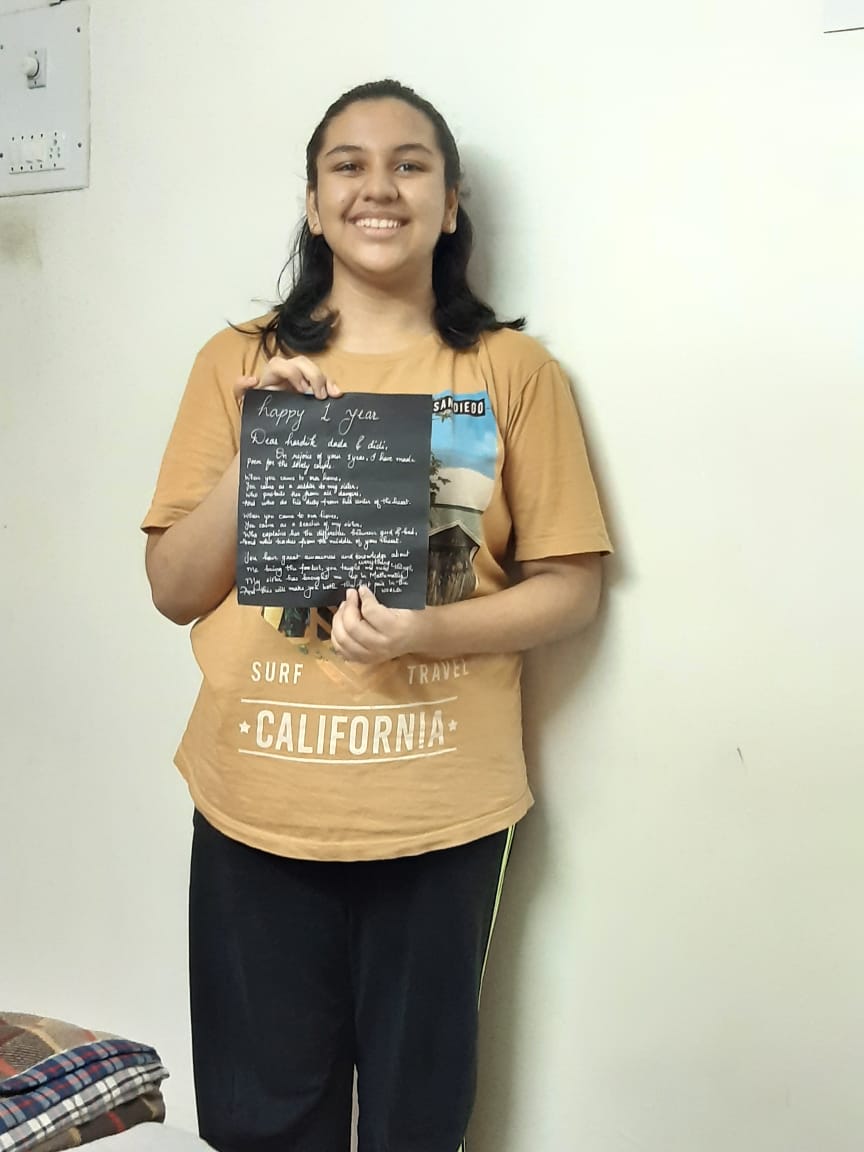 happy 1 year
Dear hardik dada & didi,
On rejoice of your 1 year, I have made
poem for the lovely couple.
When you came to our home,
You came as a soldier to my sister,
Who protects her from all dangers,
And who do his duty from the center of the heart.
When you came to our home,
You came as a teacher of my sister,
Who explains her the difference between good & bad,
And who teaches from the middle of your heart.
You have great awareness and knowledge about everything
Me being the you taught me
My sister has brought me up in Mathematics
And this will make you both the pair in the
world
SAN DIEGO
SURF TRAVEL
CALIFORNIA